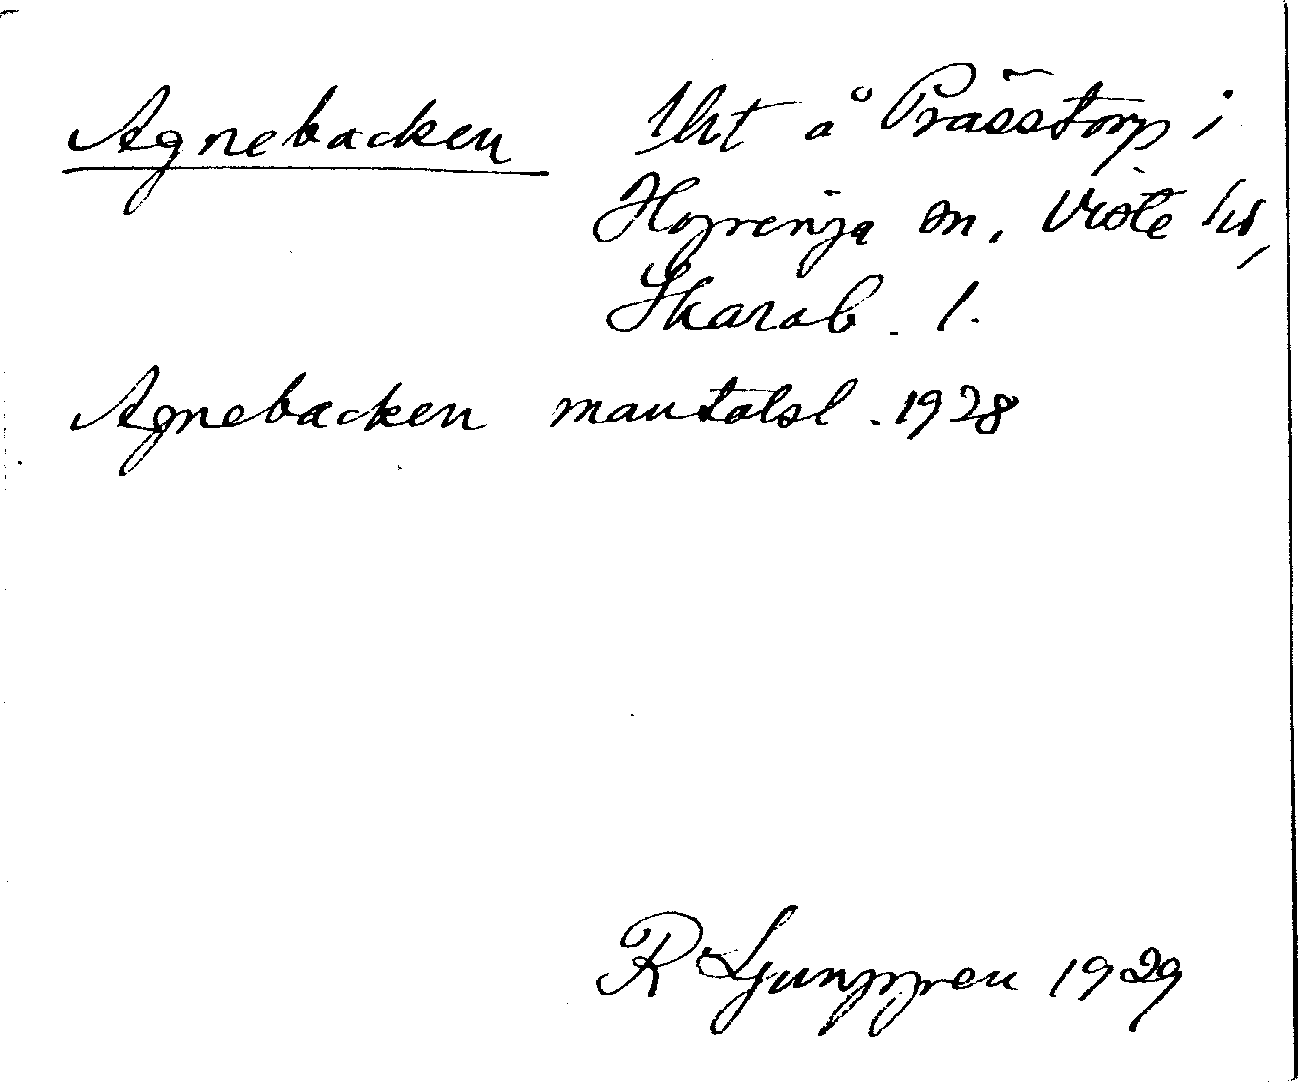 Agnebacken lht å Prässtorp i
Hyrenja sn, Viste hd,
Skarab. l.
Agnebacken mantalsl. 1928
R Ljunggren 1929